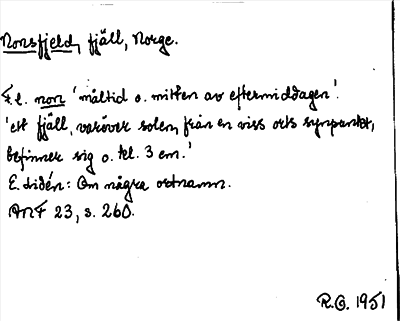 Nonsfjeld, fjäll, Norge.
F.l. non 'måltid o. mitten av eftermiddagen'.
'ett fjäll, varöver solen, från en viss orts synpunkt,
befinner sig o. kl. 3 em.'
E. Lidén: Om några ortnamn.
ANF 23, s. 260.
R.G. 1951